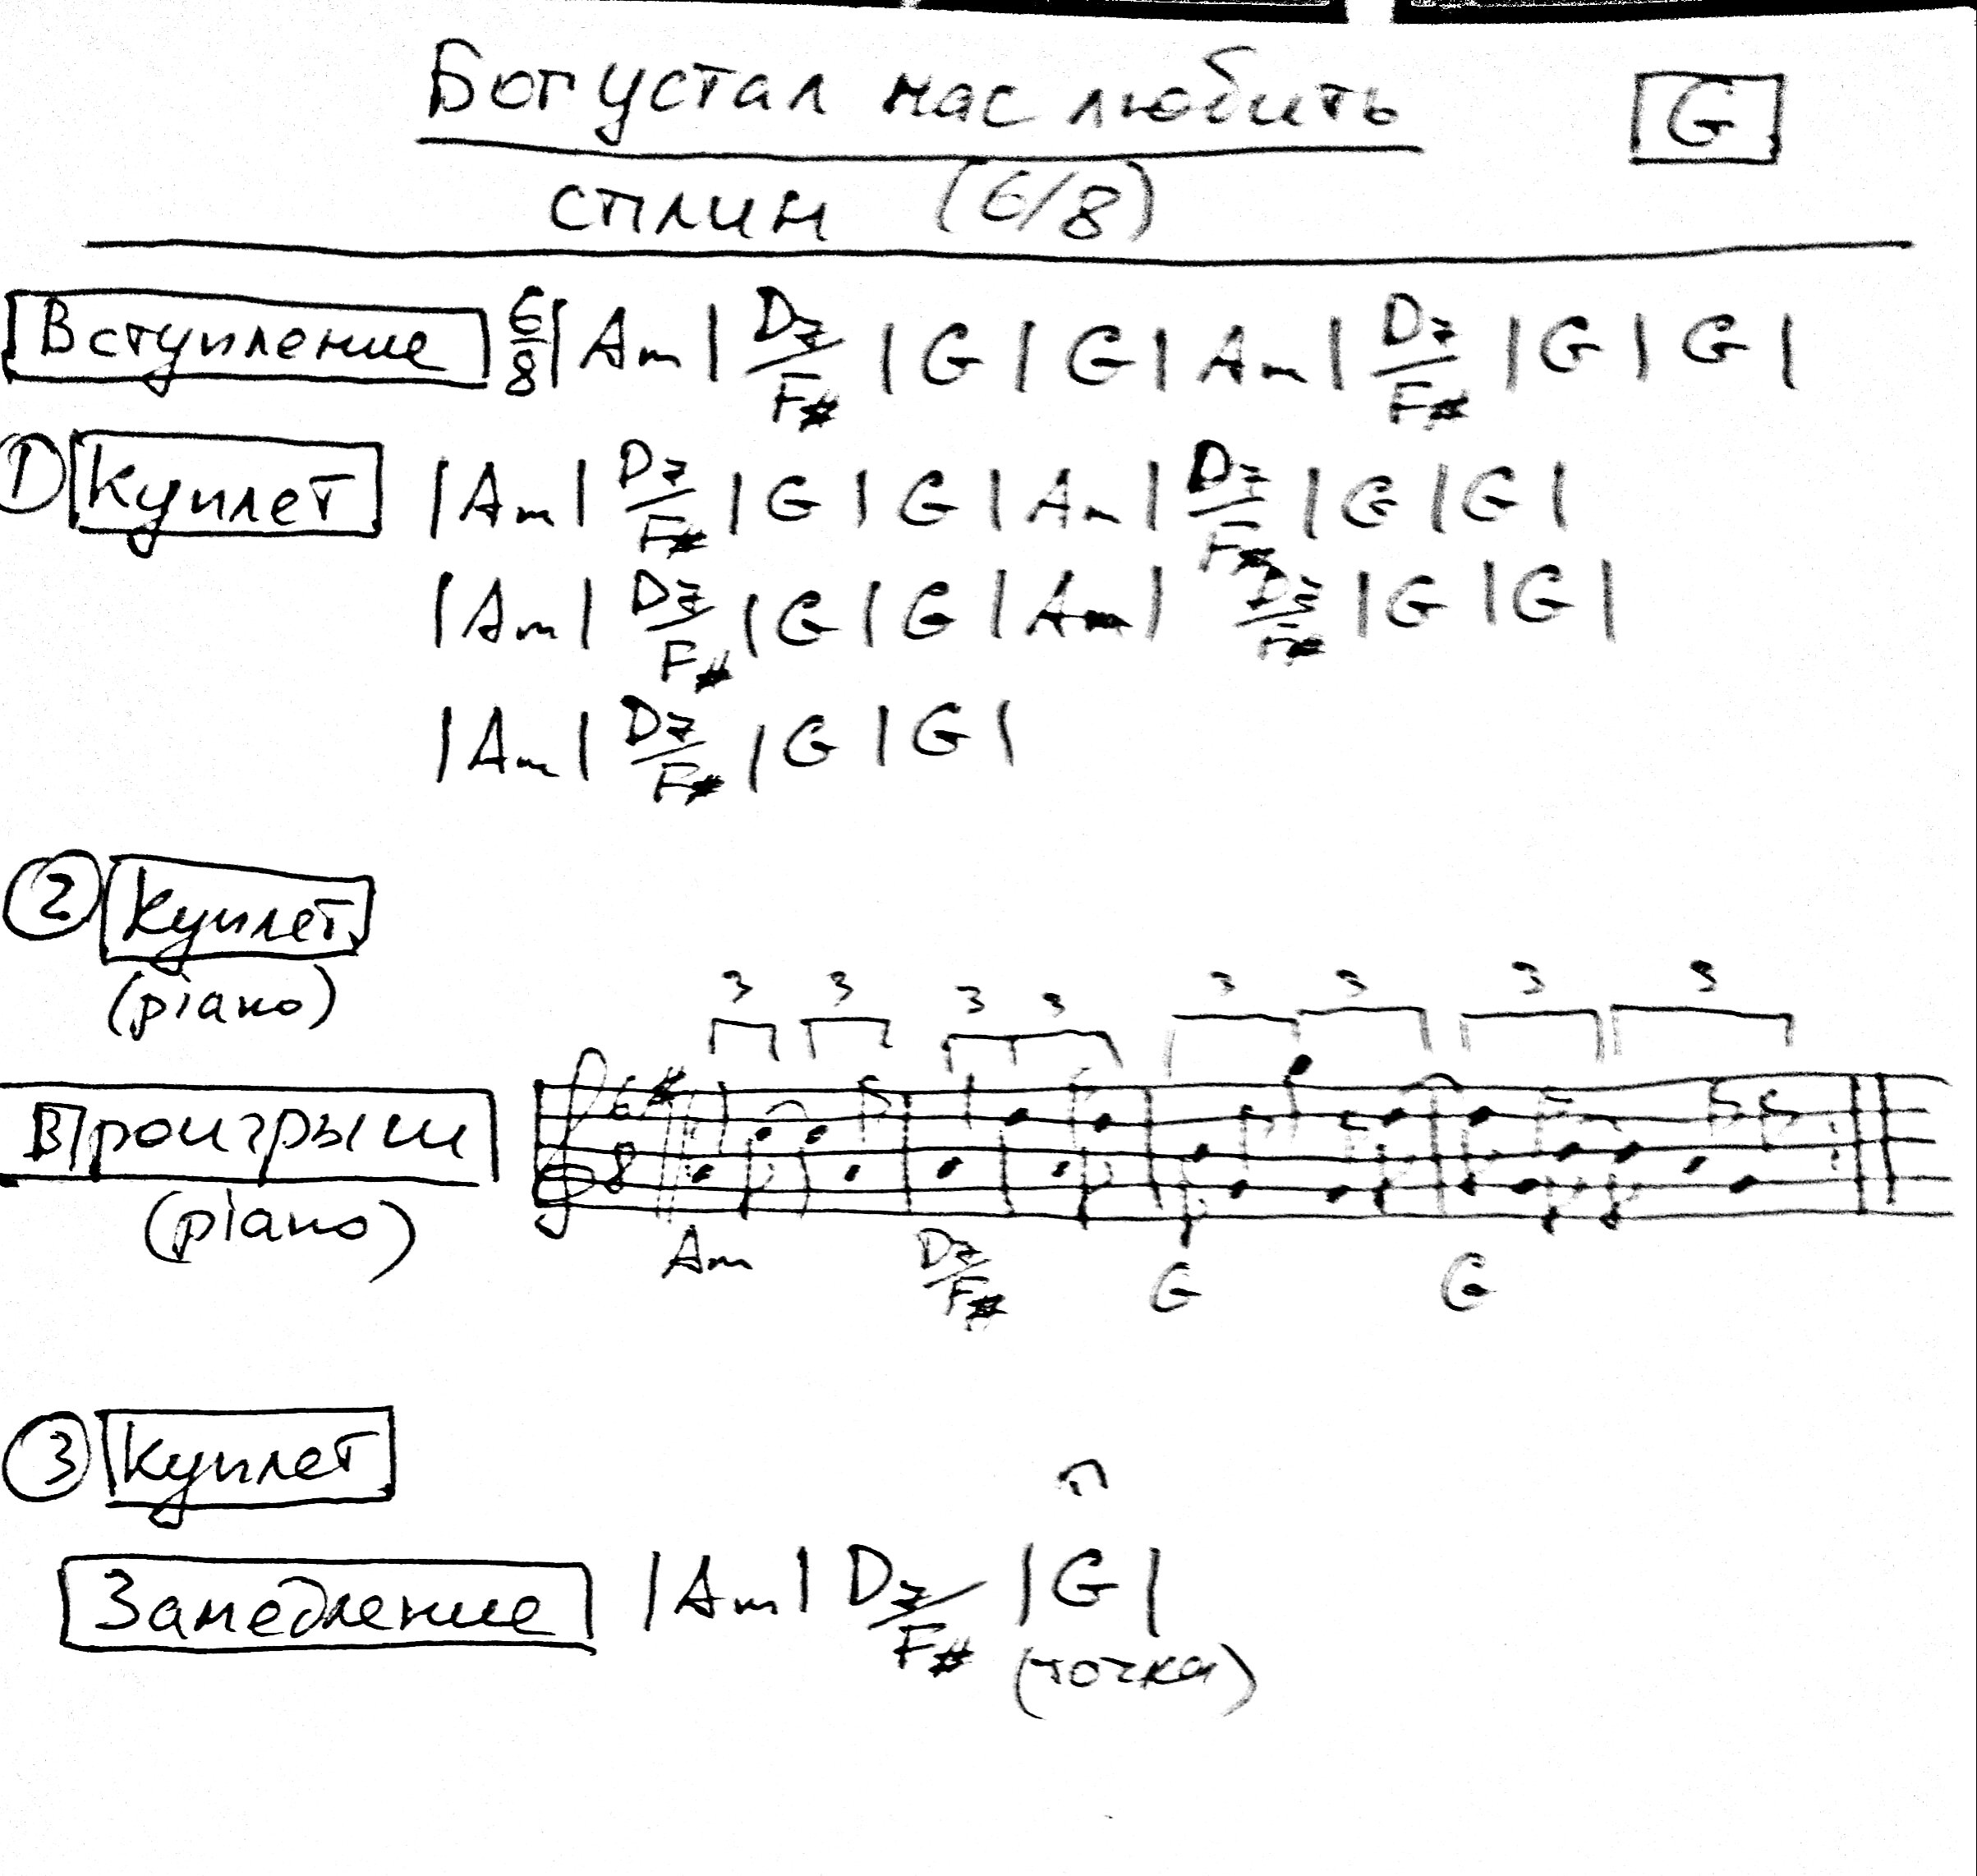 Бог устал нас любить G
сплин (6/8)
Вступление 6/8 | Am | D7/F# | G | G | Am | D7/F# | G | G |
① Куплет | Am | D7/F# | G | G | Am | D7/F# | G | G |
| Am | D7/F# | G | G | Am | D7/F# | G | G |
| Am | D7/F# | G | G |
② Куплет
(piano)
3 3 3 3 3 3 3 3
Проигрыш 6/8 #
(piano) Am D7/F# G G
③ Куплет
Замедление | Am | D7/F# | G |
(точка)